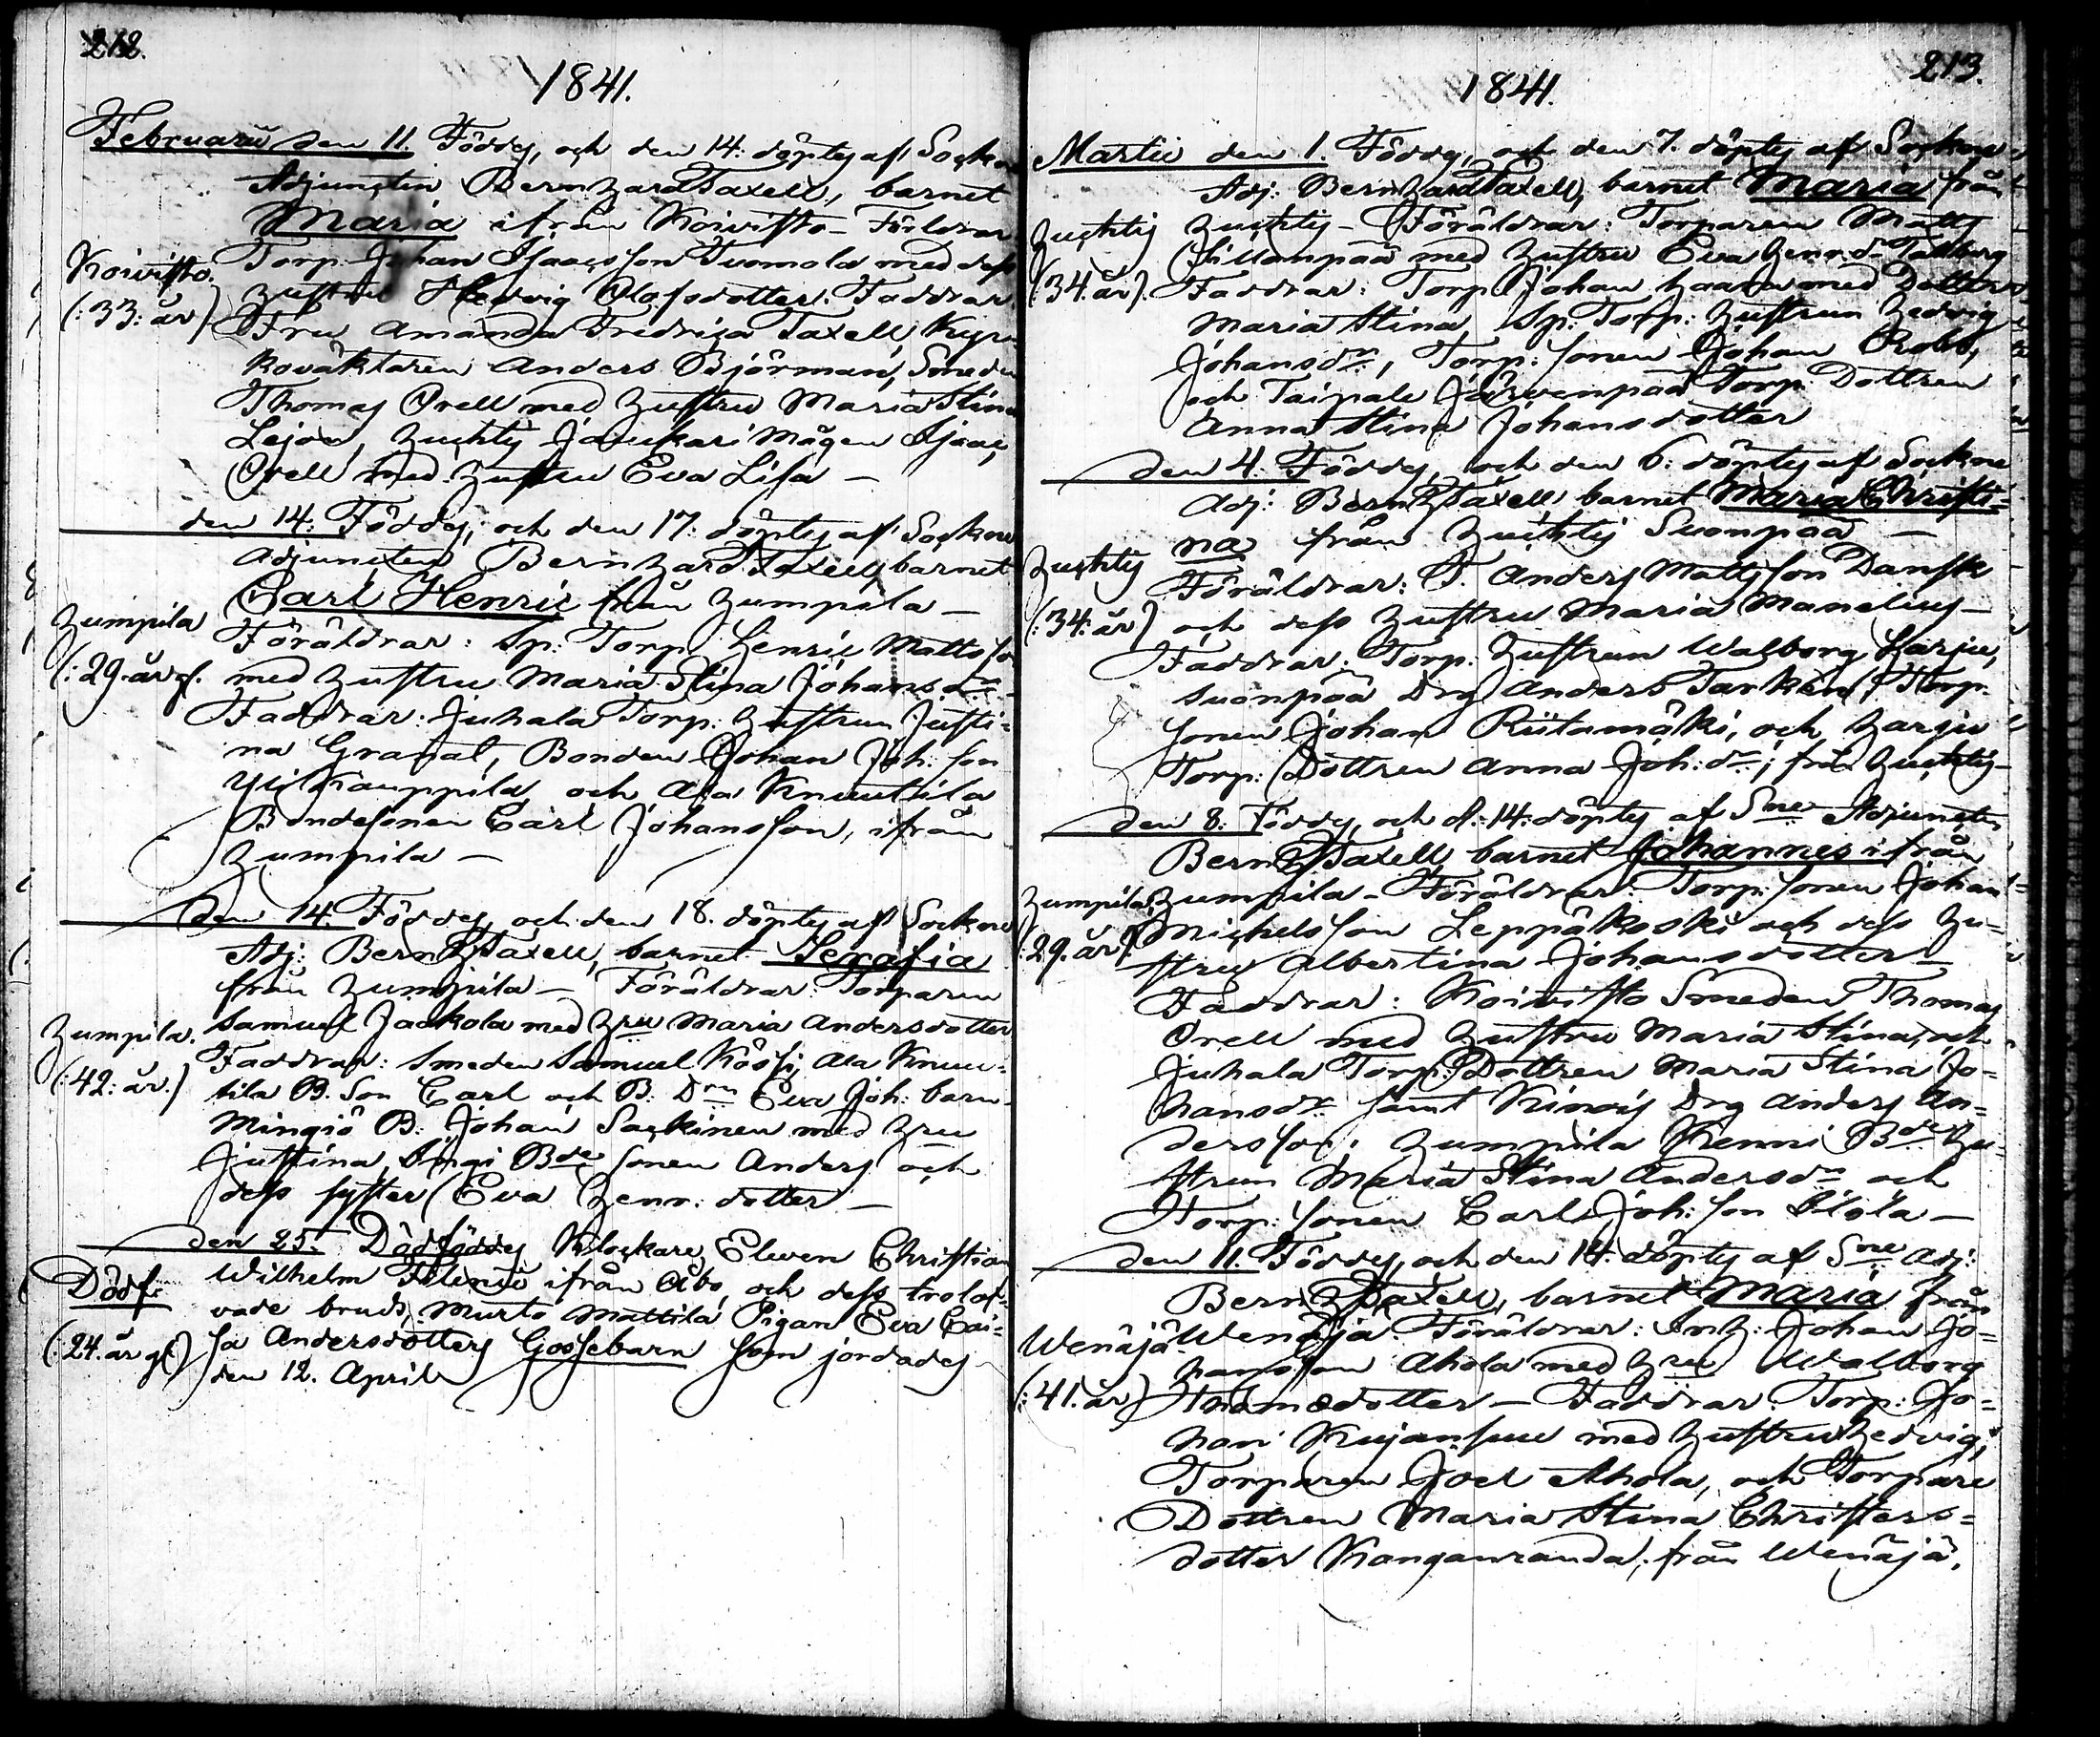 212.
1841.
Februarii den 11. Föddes, och den 14: döptes af Sockne
Adjuncten Bernhard Taxell, barnet
Maria ifrån Koivisto – Förldrar
Koivisto. Torp. Johan Isaacsson Tuomola med dess
hustru Hedvig Olofsdotter. Faddrar
(:33: år) Fru Amanda Fredrica Taxell, Kyr-
kovaktaren Anders Björman, Smeden
Thomas Orell med hustru Maria Stina
Lejon, Huchtis Jaukari mågen Isaac
Orell med hustru Eva Lisa –
den 14: Föddes, och den 17: döptes af Sockne
Adjuncten Bernhard Taxell, barnet
Carl Henric från Humpila –
Humpila Föräldrar: Sp: Torp. Henric Matts son
(:29. år gl. med hustru Maria Stina Johansdr
Faddrar: Juhala Torp: hustrun Justi-
na Granat, Bonden Johan Joh: son
Yli Kauppila och Ala Knuutila
Bondesonen Carl Johansson, ifrån
Humpila –
den 14. Föddes, och den 18. döptes af Sockne
Adj: Bernh Taxell, barnet Serafia
från Humpila – Föräldrar: Torparen
Humpila. Samuel Jaakola med Hru Maria Andersdotter
Faddrar: Smeden Samuel Kössi, Ala Knuu-
(:42: år.) tila B. Son Carl och B. Drn Eva Joh: barn
Mingiö B: Johan Sackinen med Hru
Justina, Singi Bde sonen Anders och
dess syster Eva Henr: dotter –
den 25. Dödföddes Klockare Eleven Christian
Dödf: Wilhelm ifrån Åbo, och dess trolof-
vade bruds, Murto Mattila Pigan Eva Cai-
(:24. år gl) sa Andersdotters Gossebarn som jordades
den 12. April
213.
1841.
Martii den 1. Föddes, och den 7. döptes af Sockne
Adj: Bernhard Taxell, barnet Maria från
Huchtis Huchtis – Föräldrar: Torparen Matts
Sillanpää med hustru Eva Henr.dr Tallberg
(:34. år). Faddrar: Torp. Johan med Dottern
Maria Stina, Sp: Torp: hustrun Hedvig
Johansdr, Torp: sonen Johan Robb,
och Taipale Järvenpää Torp. Dottren
Anna Stina Johansdotter
den 4: Föddes, och den 6: döptes af Sockne
Adj: Bernh Taxell, barnet Maria Christi=
na från Huchtis Suonpää –
Huchtis Föräldrar: T. Anders Mattsson Dansk
(:34: år) och dess hustru Maria Manelius –
Faddrar: Torp: hustrun Walborg Harju,
Suonpää Drg Anders Tarken, Torp.
sonen Johan Riitamäki, och Harju
Torp: Dottren Anna Joh: dr; från Huchtis –
den 8: Föddes, och d. 14: döptes af Sne Adjuncten
Bernh Taxell, barnet Johannes ifrån
Humpila, Humpila – Föräldrar: Torp: sonen Johan
(:29. år). Michelsson Leppäkoski och dess hu=
stru Albertina Johansdotter –
Faddrar: Koivisto Smeden Thomas
Orell med hustru Maria Stina, och
Juhala Torp: Dottren Maria Stina Jo=
hansdr samt Drg Anders An=
dersson; Humpila Kenni Bde Hu=
strun Maria Stina Andersdr och
Torp: sonen Carl Joh: son Iilola –
den 11. Föddes, och den 14. döptes af Sne Adj:
Bernh Taxell, barnet Maria från
Wenäjä Wenäjä. Föräldrar: Inh: Johan Jo=
hansson Ahola med Hru Walborg
(:41. år) Thomædotter – Faddrar: Torp: Jo=
han Kujansuu med hustru Hedvig,
Torparen Joel Ahola, och Torpare
Dottren Maria Stina Christers=
dotter Kanganranda, från Wenäjä.